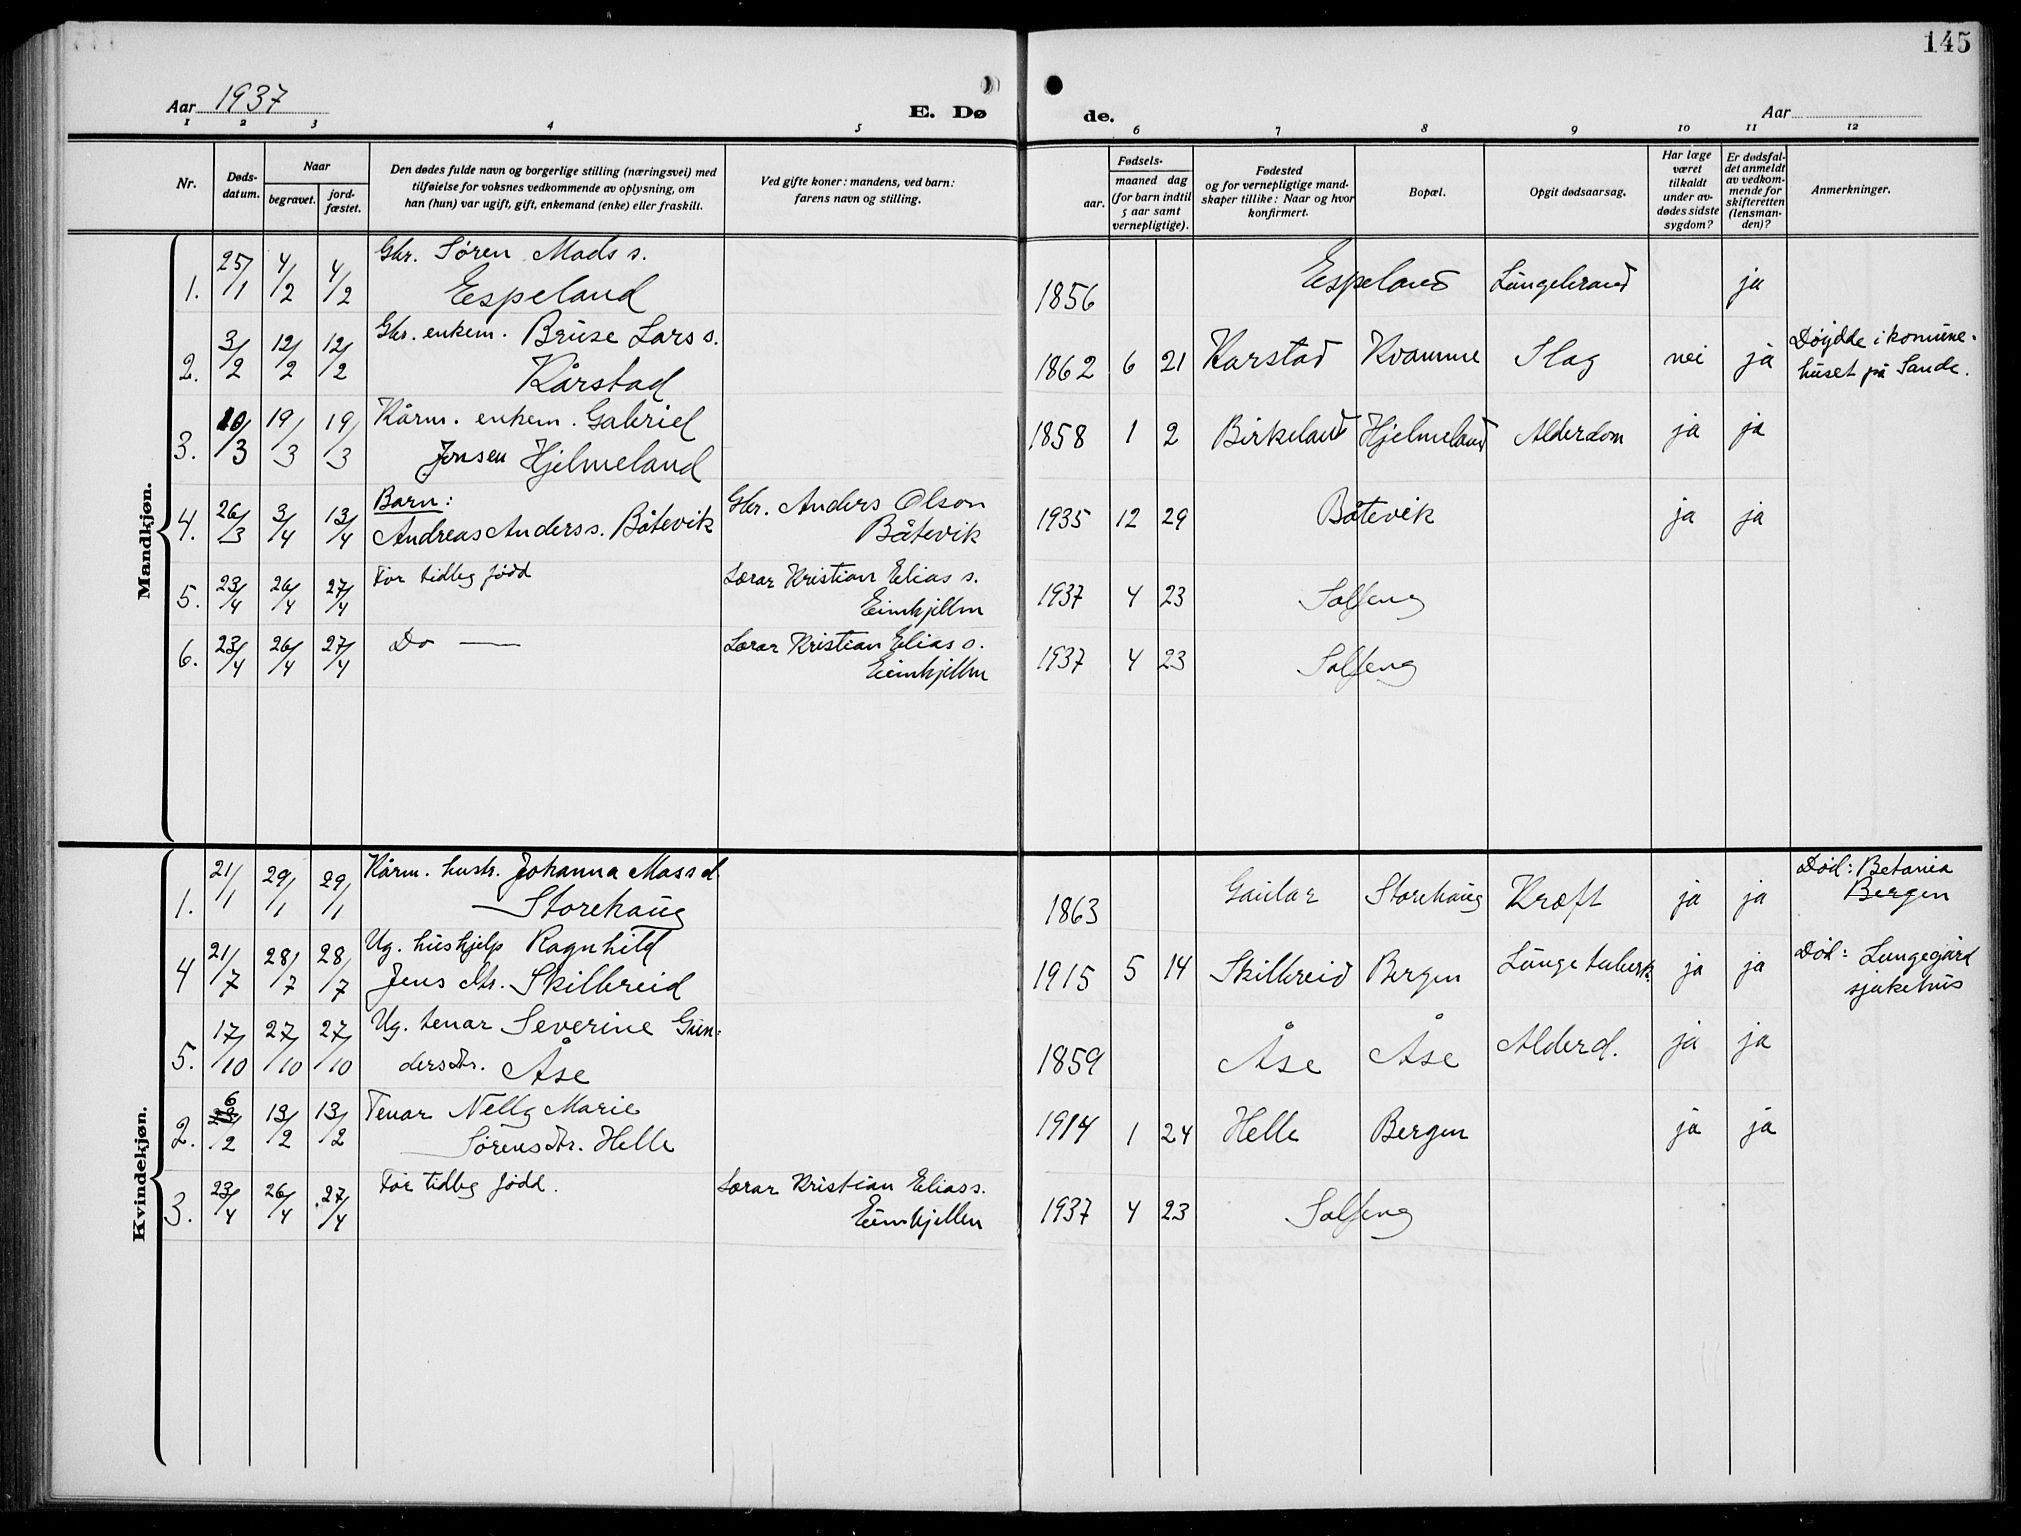 145
Aar 1937
E. Dø
de.
Aar
1 2 3 4 5 6 7 8 9 10 11 12
Nr.
Døds-
datum.
Naar
begravet.
jord-
fæstet.
Den dødes fulde navn og borgerlige stilling (næringsvei) med
tilføielse for voksnes vedkommende av oplysning, om
han (hun) var ugift, gift, enkemand (enke) eller fraskilt.
Ved gifte koner: mandens, ved barn:
farens navn og stilling.
Fødsels-
aar.
maaned dag
(for barn indtil
5 aar samt
vernepligtige).
Fødested
og for vernepligtige mand-
skaper tillike: Naar og hvor
konfirmert.
Bopæl.
Opgit dødsaarsag.
Har læge
været
tilkaldt
under av-
dødes sidste
sygdom?
Er dødsfal-
det anmeldt
av vedkom-
mende for
skifteretten
(lensman-
den)?
Anmerkninger.
Mandkjøn.
1. 25/1 4/2 4/2 Gbr. Søren Mads s.
Espeland 1856 Espeland Lungebrand ja
2. 3/2 12/2 12/2 Gbr. enkem. Bruse Lars s.
Kårstad 1862 6 21 Karstad Kvamme Slag nei ja Døydde i komune-
huset på Sande.
3. 10/3 19/3 19/3 Kårm. enkem. Gabriel
Jonsen Hjelmeland 1858 1 2 Birkeland Hjelmeland Alderdom ja ja
4. 26/3 3/4 13/4 Barn:
Andreas Anders s. Båtevik Gbr. Anders Olson
Båtevik 1935 12 29 Båtevik ja ja
5. 23/4 26/4 27/4 For tidleg fødd Lærar Kristian Elias s.
Eimhjellen 1937 4 23 Solfeng
6. 23/4 26/4 27/4 Do — Lærar Kristian Elias s.
Eimhjellen 1937 4 23 Solfeng
Kvindekjøn.
1. 21/1 29/1 29/1 Kårm. hustr. Johanna Mass d.
Storehaug 1863 Gaular Storehaug Kræft ja ja Død: Betania
Bergen
4 21/7 28/7 28/7 Ug. hushjelp Ragnhild
Jens dtr. Skilbreid 1915 5 14 Skilbreid Bergen Lungetuberk. ja ja Død: Lungegård
sjukehus
5. 17/10 27/10 27/10 Ug. tenar Severine Gun-
ders dtr. Åse 1859 Åse Åse Alderd. ja ja
2. 6/2 13/2 13/2 Tenar Nelly Marie
Sørens dtr. Helle 1914 1 24 Helle Bergen ja ja
3. 23/4 26/4 27/4 For tidleg fødd. Lærar Kristian Elias s.
Eimhjellen 1937 4 23 Solfeng